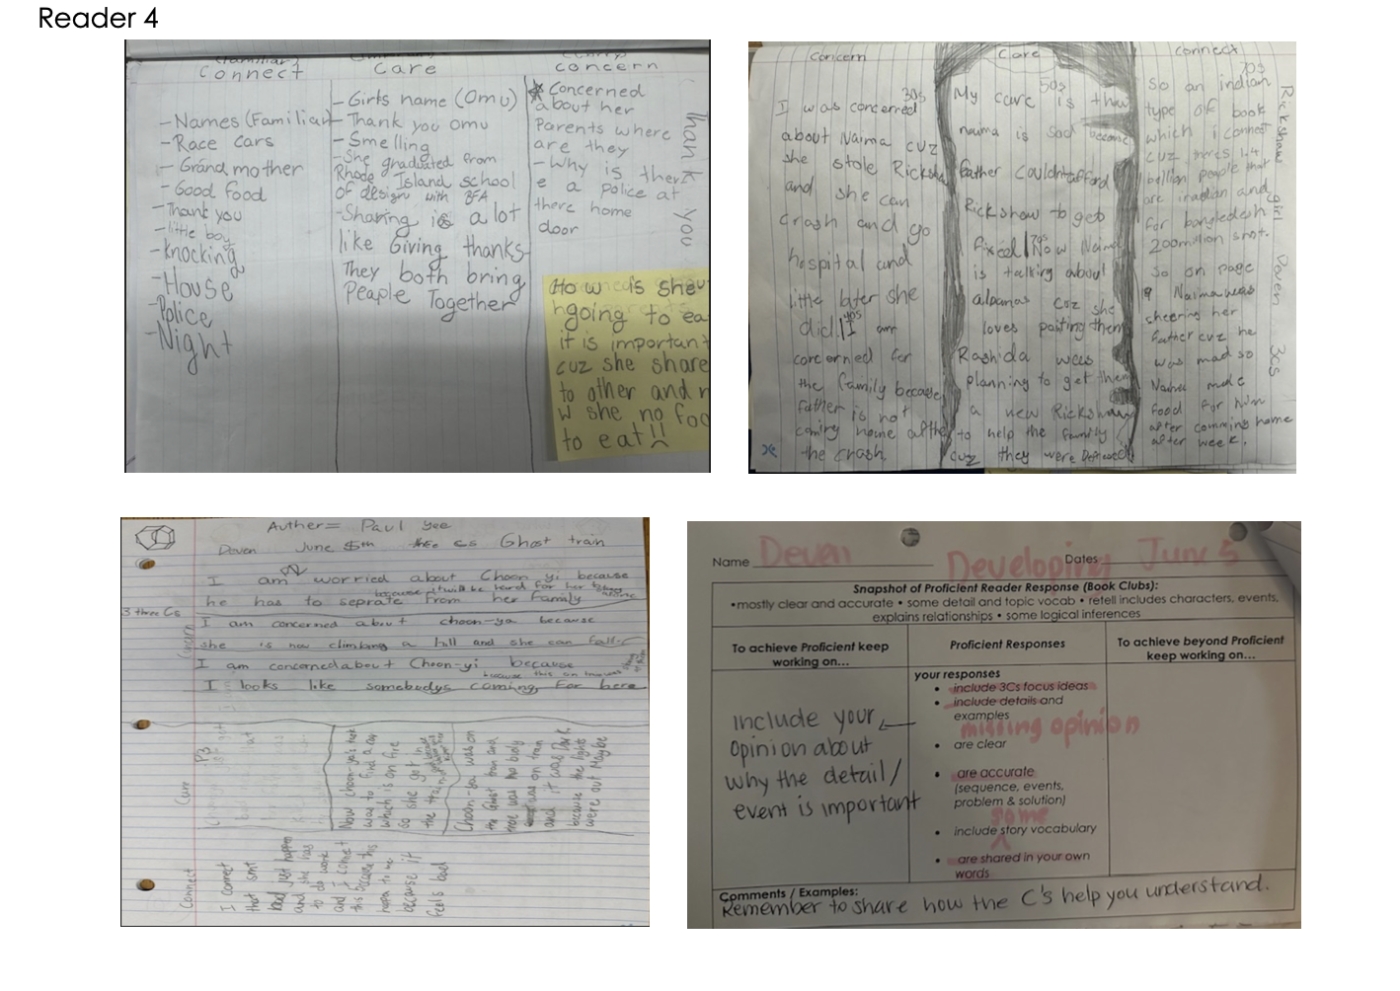 Reader 4
Connect
Care
Concern
- Names (Familiar
- Race cars
- Grand mother
- Good food
- Thank you
- little boy
- Knocking
- House
- Police
- Night
- Girls name (Omu)
- Thank you omu
- Smelling
- She graduated from
Rhode Island school
of design with BFA
- Sharing is a lot
like Giving thanks
They both bring
Peaple Together
Concerned
about her
Parents where
are they
- Why is ther
e a police at
there home
door
hank you
How is she
going to ea
it is importan
cuz she share
to other and n
w she no foo
to eat!!
Concern
Care
Connect
30s
I was concerned
about Naima cuz
she stole Ricksha
and she can
crash and go
hospital and
little later she
did. I am
concerned for
the family because
father is not
coming home after
the crash.
50s
My care is that
naima is sad because
father couldn't afford
Rickshow to get
fixed Now Naima
is talking about
alpanas coz she
loves painting them
Rashida was
planning to get them
a new Rickshaw
to help the family
cuz they were Depressed
70s
So an indian
type of book
which i connect
cuz theres 1.4
bellion people that
are indian and
for bangledesh
200million smt.
So on page
9 Naima was
sheering her
father cuz he
was mad so
Naima made
food for him
after comming home
after week.
Rickshaw girl Deven 3cs
Auther= Paul Yee
Deven June 5th thee cs Ghost train
I am worried about Choon-yi because
he has to seprate from her family
because it will be hard for her
3 three Cs
I am concerned about choon-ya because
she is now climbing a hill and she can fall.
I am concerned about Choon-yi because
I looks like somebodys coming for here
P3
Care
Now choon-ya's not
was to find a car
which is on fire
so she got in
the train
Choon-ya was on
the Ghost train and
there was no body
was on train
and it was Dark
because the lights
were out Maybe
Connect
I connect
that smt
bad just happen
and she has
to do work
and I connect
this because this
happen to me
because it
feels bad
Name Deven Developing Dates June 5
Snapshot of Proficient Reader Response (Book Clubs):
•mostly clear and accurate • some detail and topic vocab • retell includes characters, events,
explains relationships • some logical inferences
To achieve Proficient keep
working on...
Proficient Responses
To achieve beyond Proficient
keep working on...
include your
opinion about
why the detail/
event is important
your responses
• include 3Cs focus ideas
• include details and
examples
missing opinion
• are clear
• are accurate
(sequence, events,
problem & solution)
some
• include story vocabulary
• are shared in your own
words
Comments / Examples:
Remember to share how the C's help you understand.